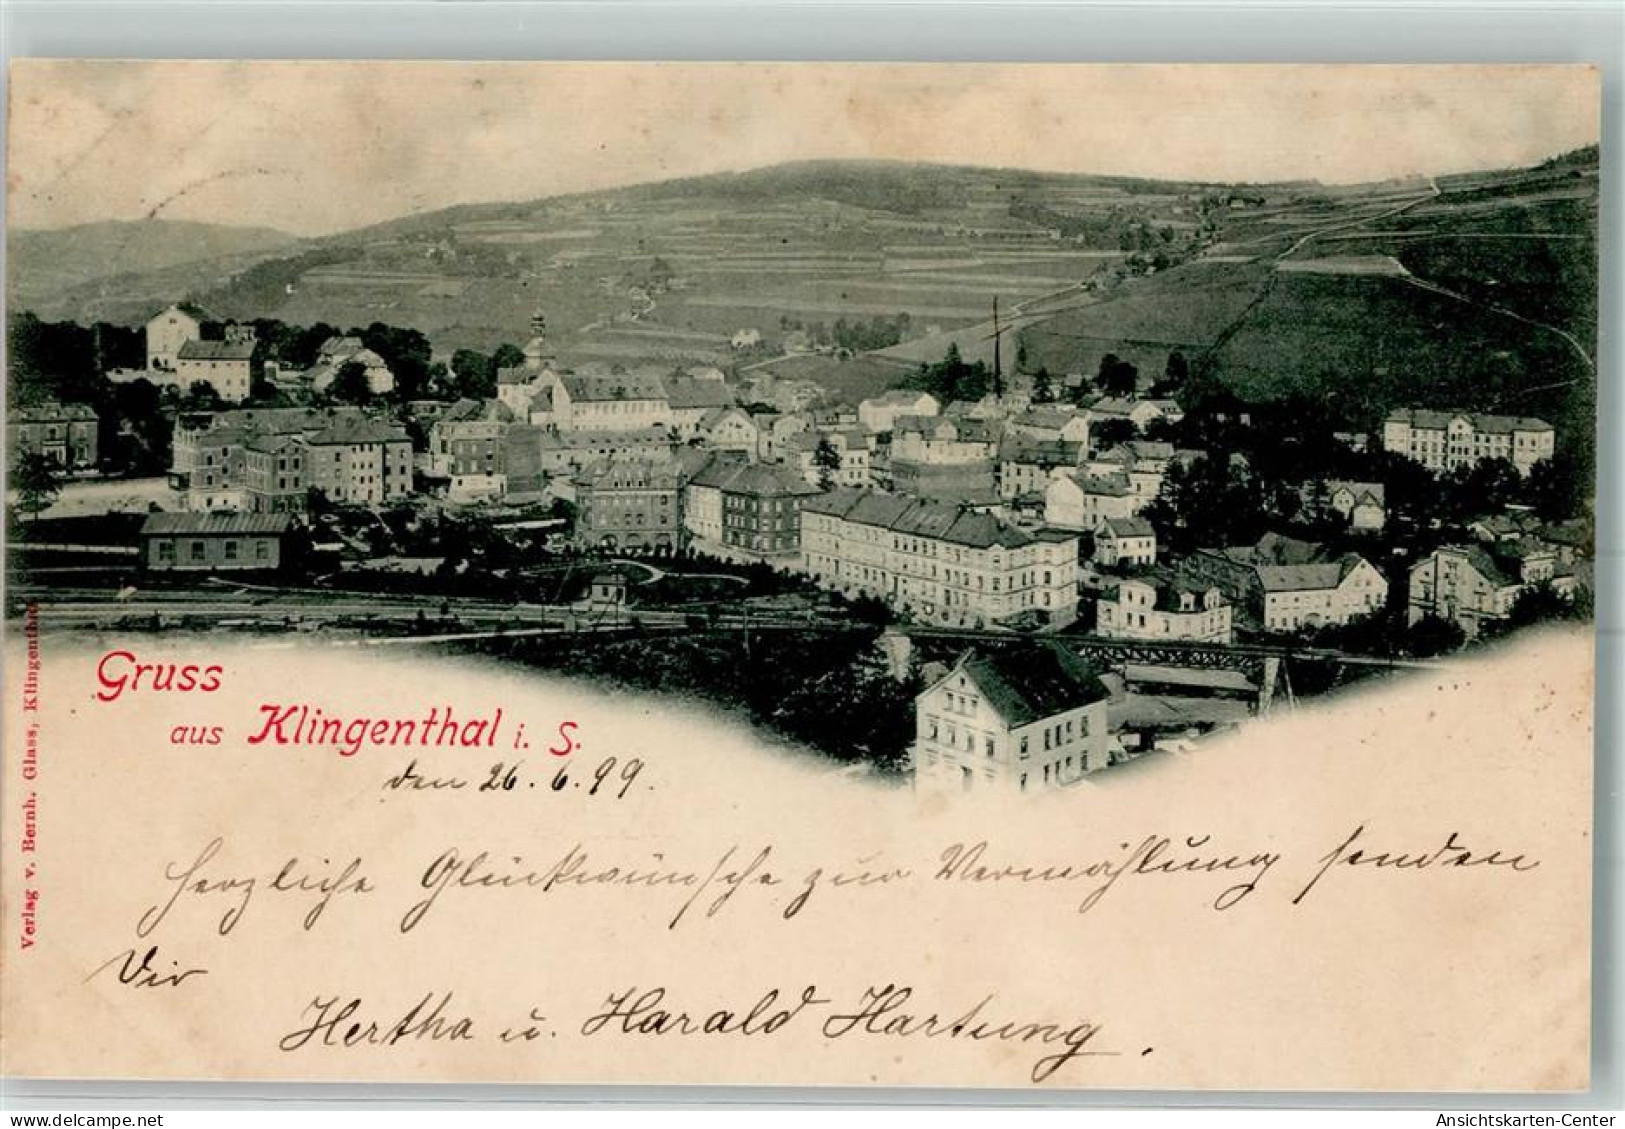 Gruss
aus Klingenthal i. S.
den 26. 6. 99.
Herzliche Glückwünsche zur Vermählung senden
Dir
Hertha u. Harald Hartung.
Verlag v. Bernh. Glass, Klingenthal
delcampe.net
Ansichtskarten-Center